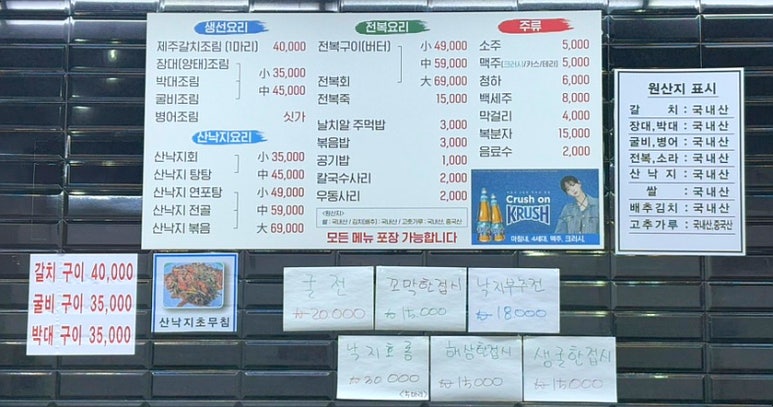 생선요리
제주갈치조림 (1마리) 40,000
장대(양태)조림
박대조림
굴비조림
小 35,000
中 45,000
병어조림 싯가
산낙지요리
산낙지회 小 35,000
산낙지 탕탕 中 45,000
산낙지 연포탕 小 49,000
산낙지 전골 中 59,000
산낙지 볶음 大 69,000
전복요리
전복구이(버터) 小 49,000
中 59,000
전복회 大 69,000
전복죽 15,000
날치알 주먹밥 3,000
볶음밥 3,000
공기밥 1,000
칼국수사리 2,000
우동사리 2,000
<원산지>
쌀 : 국내산 / 김치(배추) : 국내산 / 고춧가루 : 국내산, 중국산
모든 메뉴 포장 가능합니다
주류
소주 5,000
맥주(크러시/카스/테라) 5,000
청하 6,000
백세주 8,000
막걸리 4,000
복분자 15,000
음료수 2,000
Crush on
KRUSH
마침내, 4세대, 맥주, 크러시.
원산지 표시
갈 치 : 국내산
장대,박대 : 국내산
굴비,병어 : 국내산
전복,소라 : 국내산
산 낙 지 : 국내산
쌀 : 국내산
배추김치 : 국내산
고추가루 : 국내산,중국산
갈치 구이 40,000
굴비 구이 35,000
박대 구이 35,000
산낙지초무침
굴전
₩20,000
꼬막한접시
₩15,000
낙지부추전
₩18,000
낙지호롱
₩30,000
해삼한접시
₩15,000
생굴한접시
₩15,000